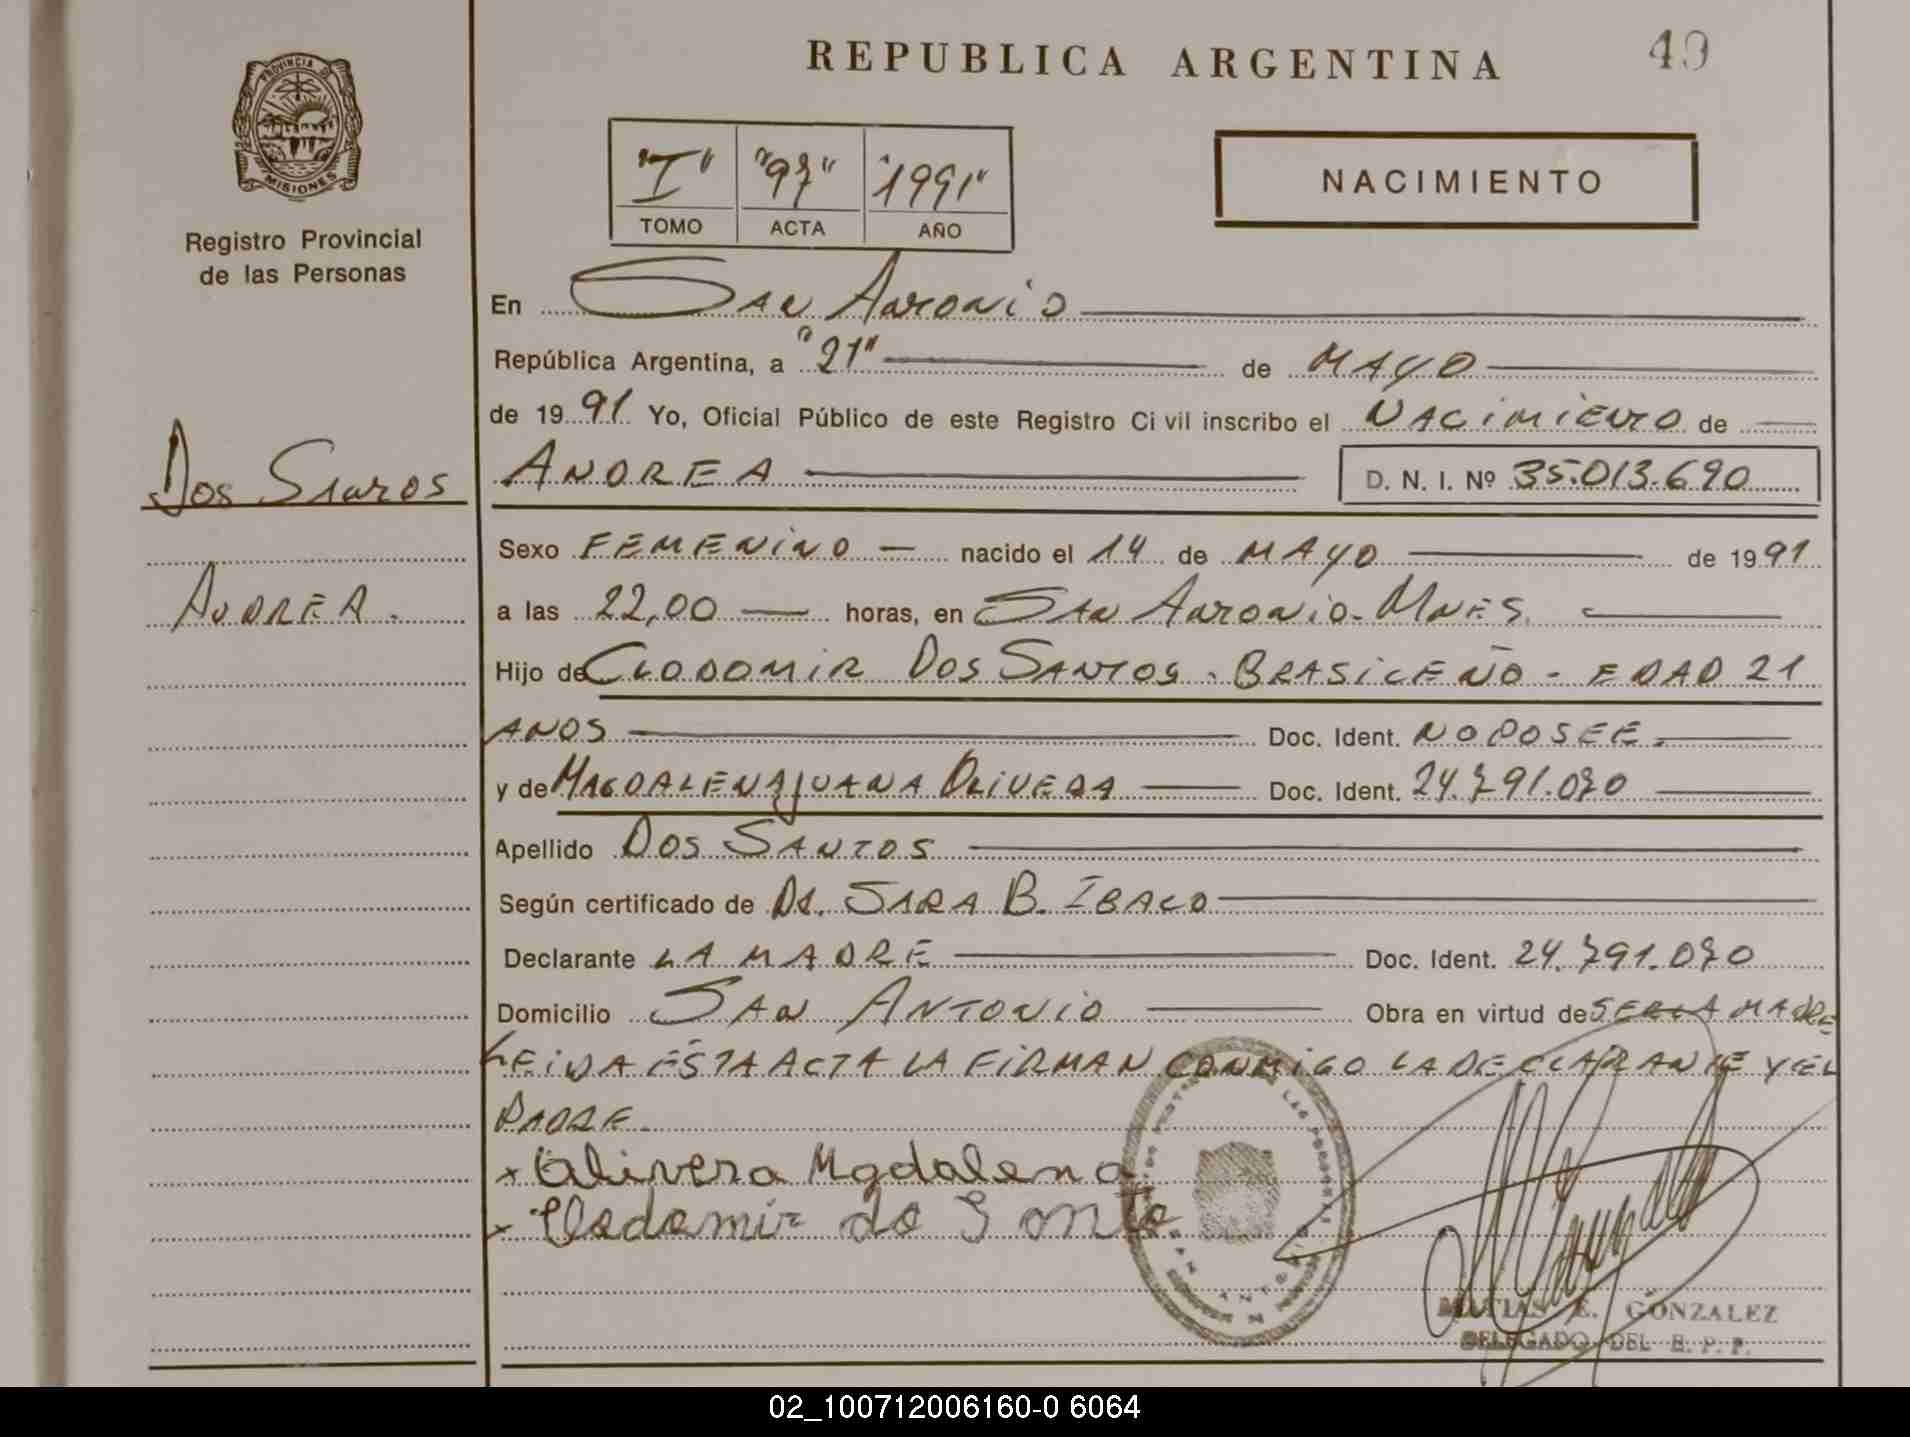 REPUBLICA ARGENTINA
49
PROVINCIA DE
MISIONES
Registro Provincial
de las Personas
"I" "97" "1991"
TOMO ACTA AÑO
NACIMIENTO
En San Antonio
República Argentina, a "21" de MAYO
de 1991 Yo, Oficial Público de este Registro Civil inscribo el NACIMIENTO de
Dos Santos
ANDREA D. N. I. Nº 35.013.690
Sexo FEMENINO nacido el 14 de MAYO de 1991
ANDREA.
a las 22,00 horas, en SAN ANTONIO - MNES.
Hijo de CLODOMIR DOS SANTOS - BRASILEÑO - EDAD 21
AÑOS Doc. Ident. NO POSEE.
y de MAGDALENA JUANA OLIVERA Doc. Ident. 24.791.070
Apellido DOS SANTOS
Según certificado de SARA B.
Declarante LA MADRE Doc. Ident. 24.791.070
Domicilio SAN ANTONIO Obra en virtud de SER LA MADRE
LEIDA ESTA ACTA LA FIRMAN CONMIGO LA DECLARANTE Y EL
PADRE.
x Olivera Mgdalena
x Clodomir do Santo
SAN ANTONIO
MATIAS E. GONZALEZ
DELEGADO DEL R. P. P.
02_100712006160-0 6064